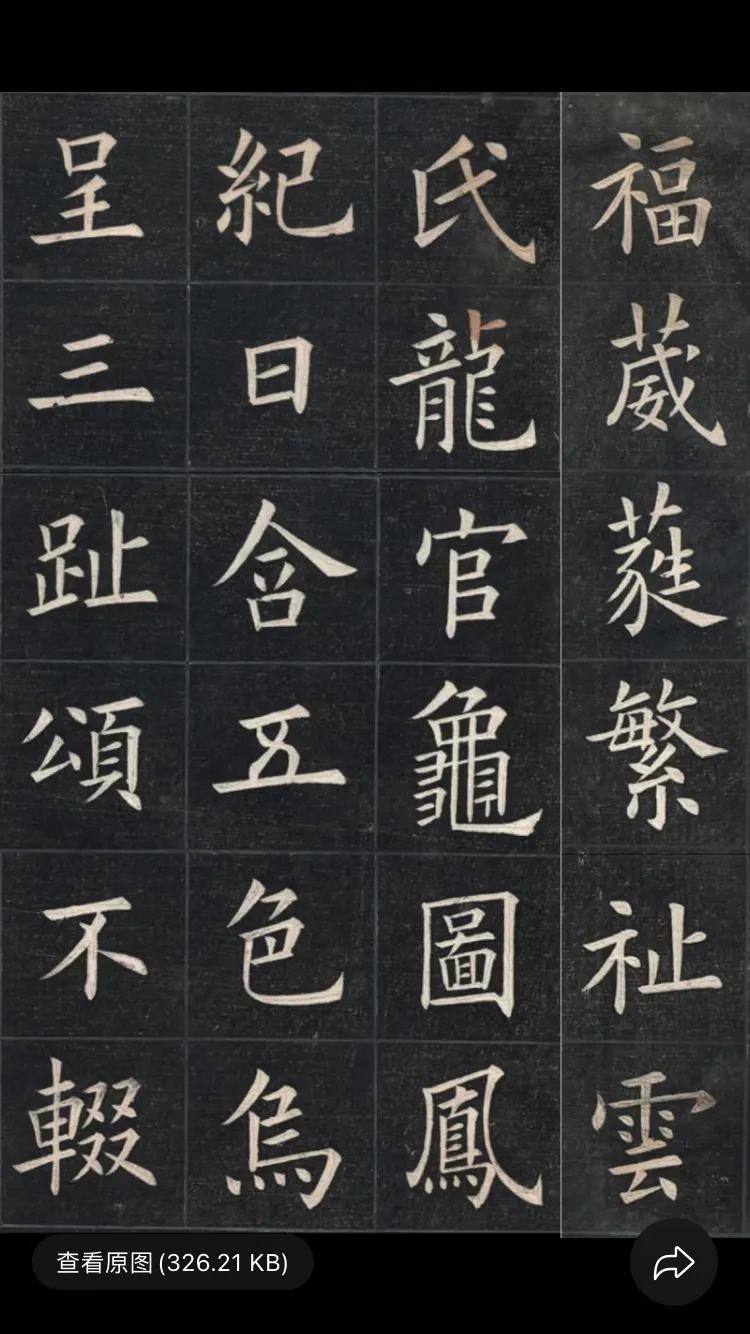 福葳蕤繁祉雲
氏龍官龜圖鳳
紀日含五色烏
呈三趾頌不輟
查看原图 (326.21 KB)